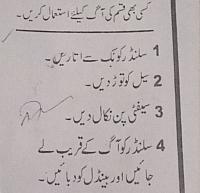 کسی بھی قسم کی آگ کیلئے استعمال کریں۔
1 سلنڈر کو ہک سے اتاریں۔
2 سیل کو توڑ دیں۔
3 سیفٹی پن نکال دیں۔
4 سلنڈر کو آگ کے قریب لے
جائیں اور ہینڈل کو دبائیں۔